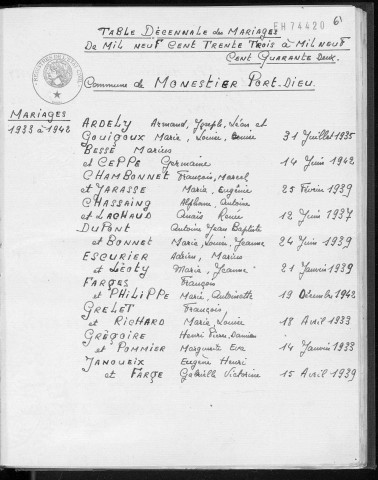 EH74420
6
TABLE DÉCENNALE des MARIAGES
DE MIL NEUF CENT TRENTE TROIS à MIL NEUF
CENT QUARANTE DEUX.
Commune de MONESTIER PORT-DIEU.
MARIAGES
1933 à 1942
ARDELY Armand, Joseph, Léon et
GOUIGOUX Marie, Louise, Denise 31 Juillet 1935
BESSE Marius
et CEPPE Germaine 14 Juin 1942
CHAMBONNET François, Marcel
et JARASSE Marie, Eugénie 25 Février 1939
CHASSAING Alphonse, Antoine
et LACHAUD Anaïs Renée 12 Juin 1937
DUPONT Antoine Jean Baptiste
et BONNET Marie, Louise, Jeanne 24 Juin 1939
ESCURIER Adrien, Marius
et LÉOTY Marie, Jeanne 21 Janvier 1939
FARGES François
et PHILIPPE Marie, Antoinette 19 Décembre 1942
GRELET François
et RICHARD Marie, Louise 18 Avril 1933
GRÉGOIRE Henri Pierre Damien
et POMMIER Marguerite Eva 14 Janvier 1933
JANOUEIX Eugène Henri
et FARGE Gabrielle Victorine 15 Avril 1939